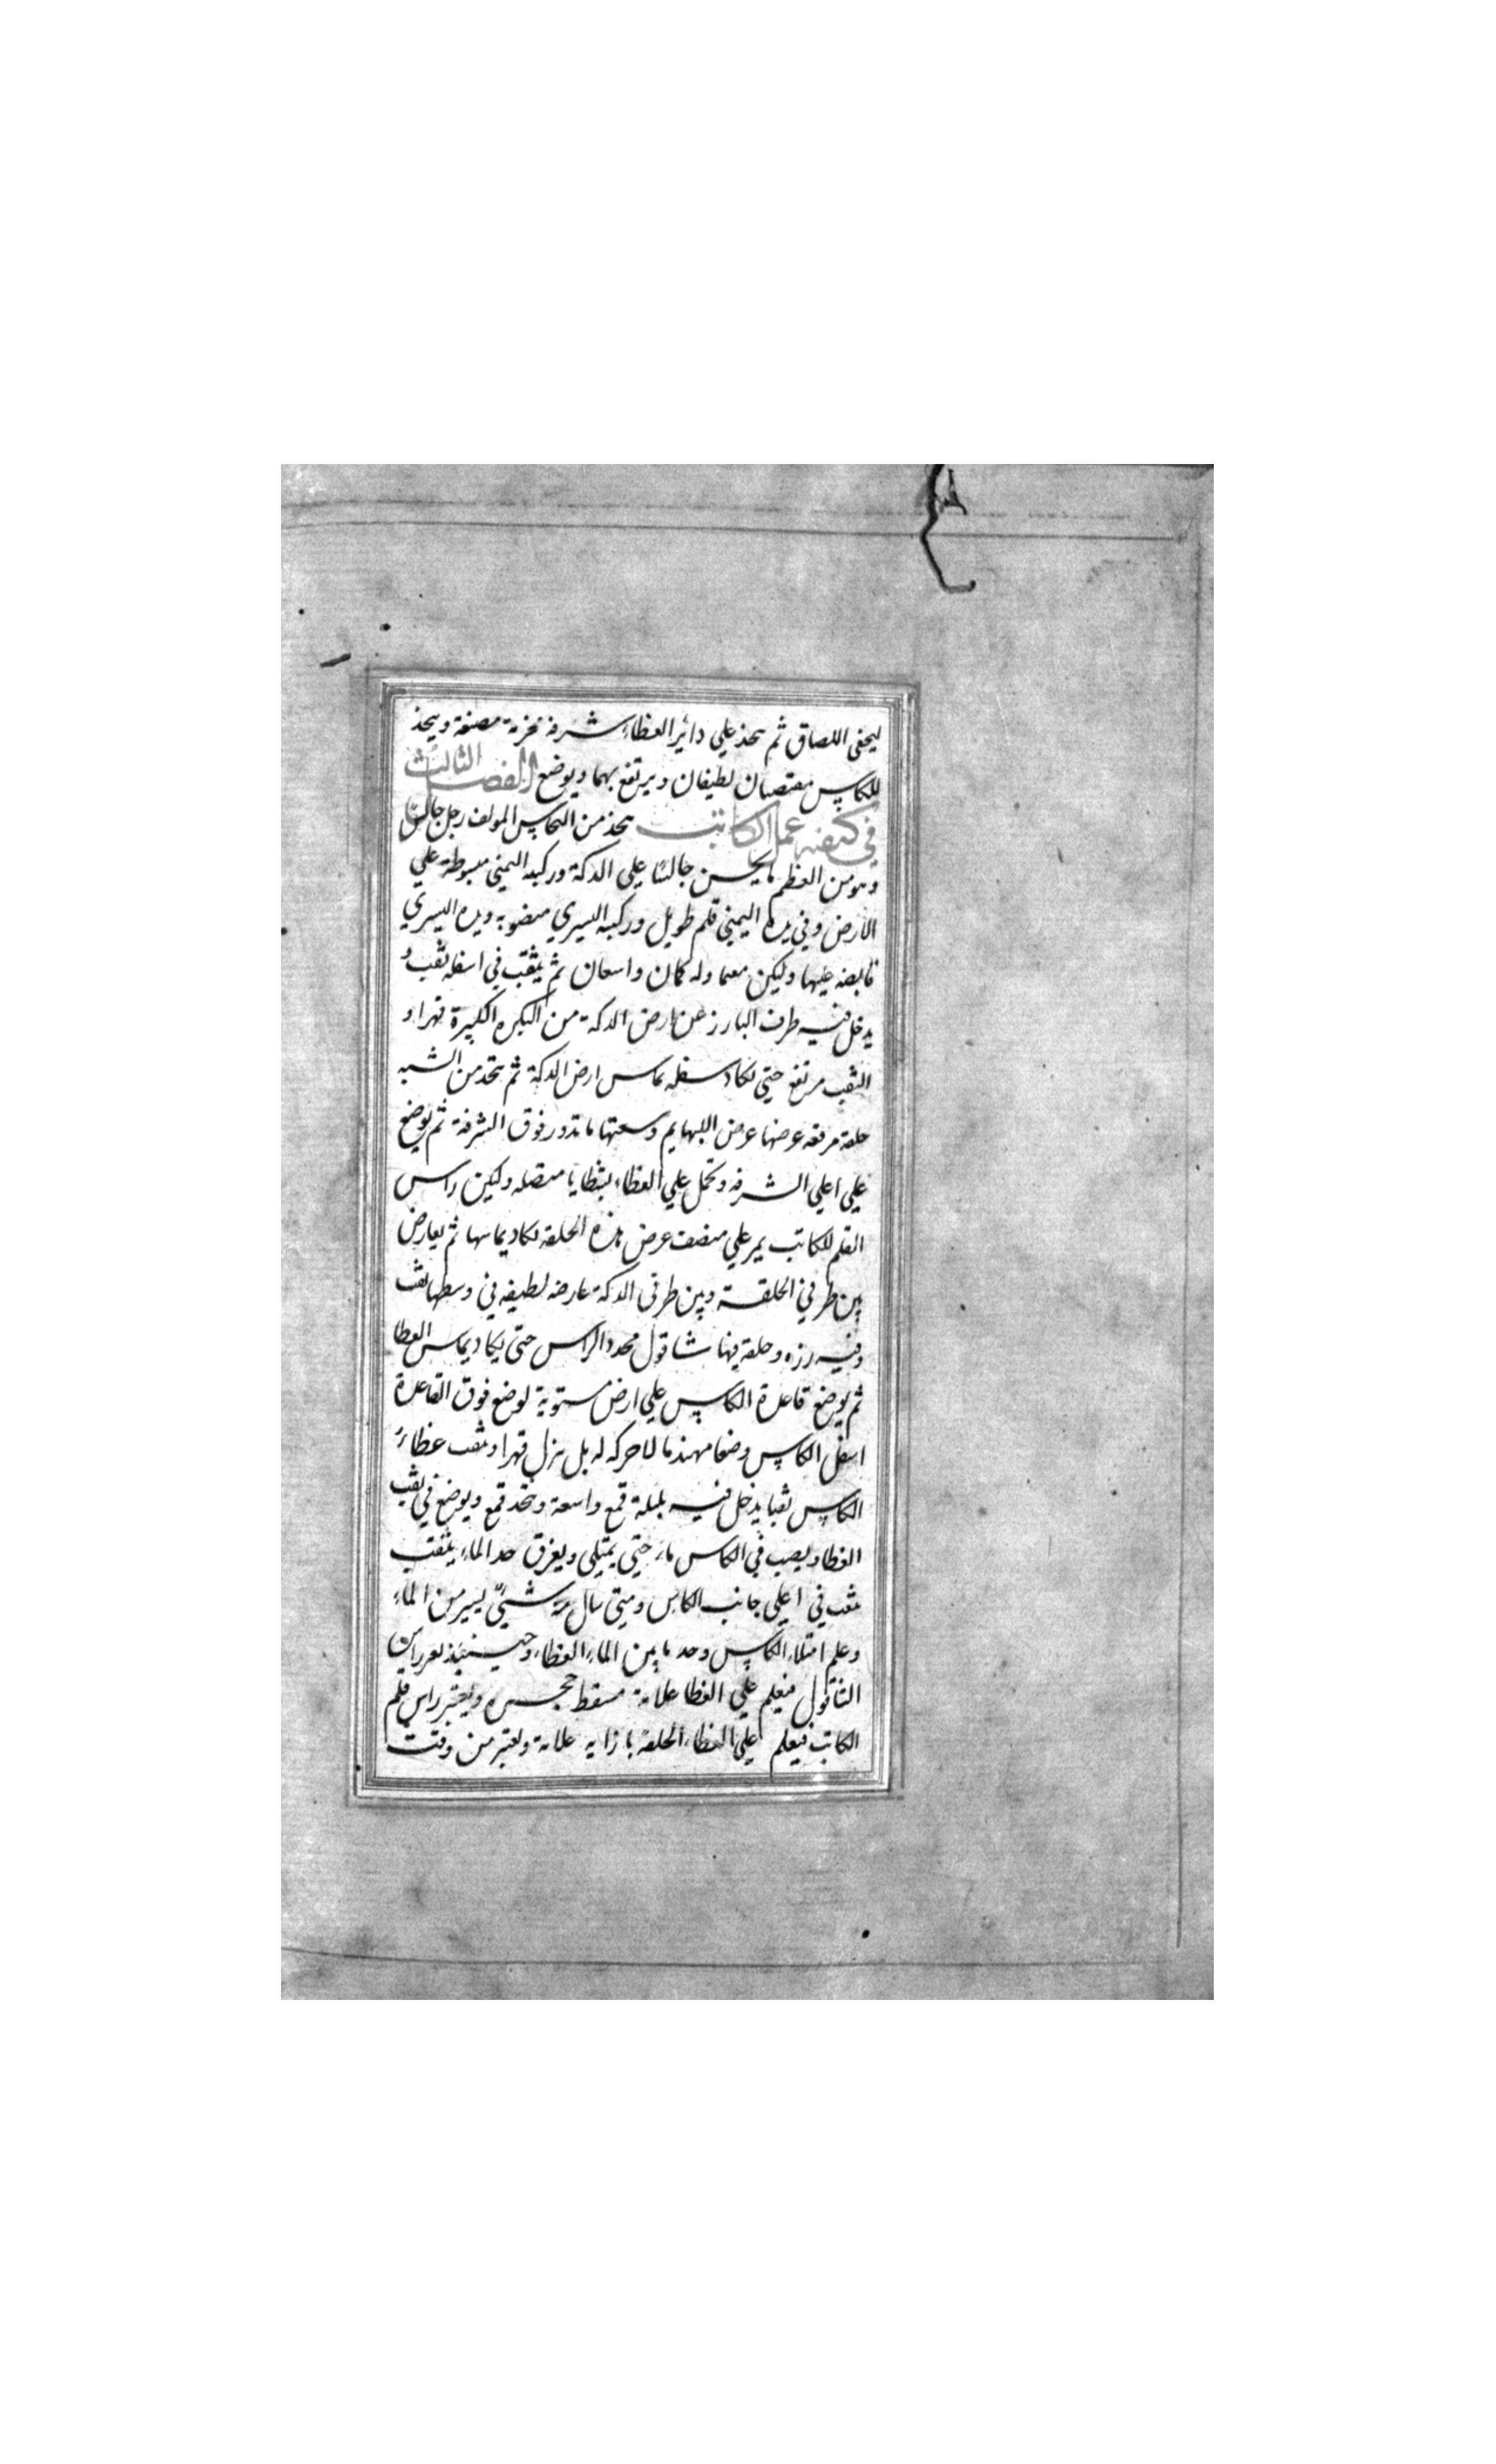 ليخفى اللصاق ثم يتخذ علي دائر الغطاء شرفه مخرمة مصنعة ويتخذ
للكاس مقبضان لطيفان ويرتفع بهما ويوضع الفصل الثالث
في كيفيه عمل الكاتب يتخذ من النحاس المولف رجل جالس
وهو من العظم ما يحسن جالسًا علي الدكة وركبه اليمني مبسوطة علي
الارض وفي يده اليمني قلم طويل وركبه اليسري منضوبه ويده اليسري
قابضه عليها وليكن معما وله كمان واسعان ثم يثقب في اسفله ثقب و
يدخل فيه طرف البارز عن ارض الدكة من البكره الكبيرة قهرا و
الثقب مرتفع حتي لكاد سفله يماس ارض الدكة ثم يتخد من الشبه
حلقه مرقعه عرضها عرض الابهام وسعتها ما تدور فوق الشرفة ثم يوضع
علي اعلي الشرفه وتحمل علي الغطاء بشظايا متصله وليكن راس
القلم للكاتب يمر علي منصف عرض هذه الحلقه لكاد يماسها ثم يعارض
بين طرفي الحلقة وبين طرفي الدكة عارضه لطيفه في وسطها ثقب
وفيه رزه وحلقه فيها شاقول محدد الراس حتى يكاد يماس الغطا
ثم يوضع قاعدة الكاس علي ارض مستوية لوضع فوق القاعدة
اسفل الكاس وضعا مهندما لا حركه له بل نزل قهرا وثقب غطاء
الكاس ثقبا يدخل فيه بلبلة قمع واسعة وتخد قمع ويوضع في ثقب
الغطا ويصب في الكاس ماء حتي يمتلي ويعرق حد الماء يثقب
ثقب في اعلي جانب الكاس ومتي سال منه شيئ يسير من الماء
وعلم امتلاء الكاس وحد ما بين الماء الغطاء وحينيئذ لعرراس
الشاقول فيعلم علي الغطا علامة مسقط حجره ويعتبر راس قلم
الكاتب فيعلم علي الغطاء الحلقة بازايه علامة ويعتبر من وقت